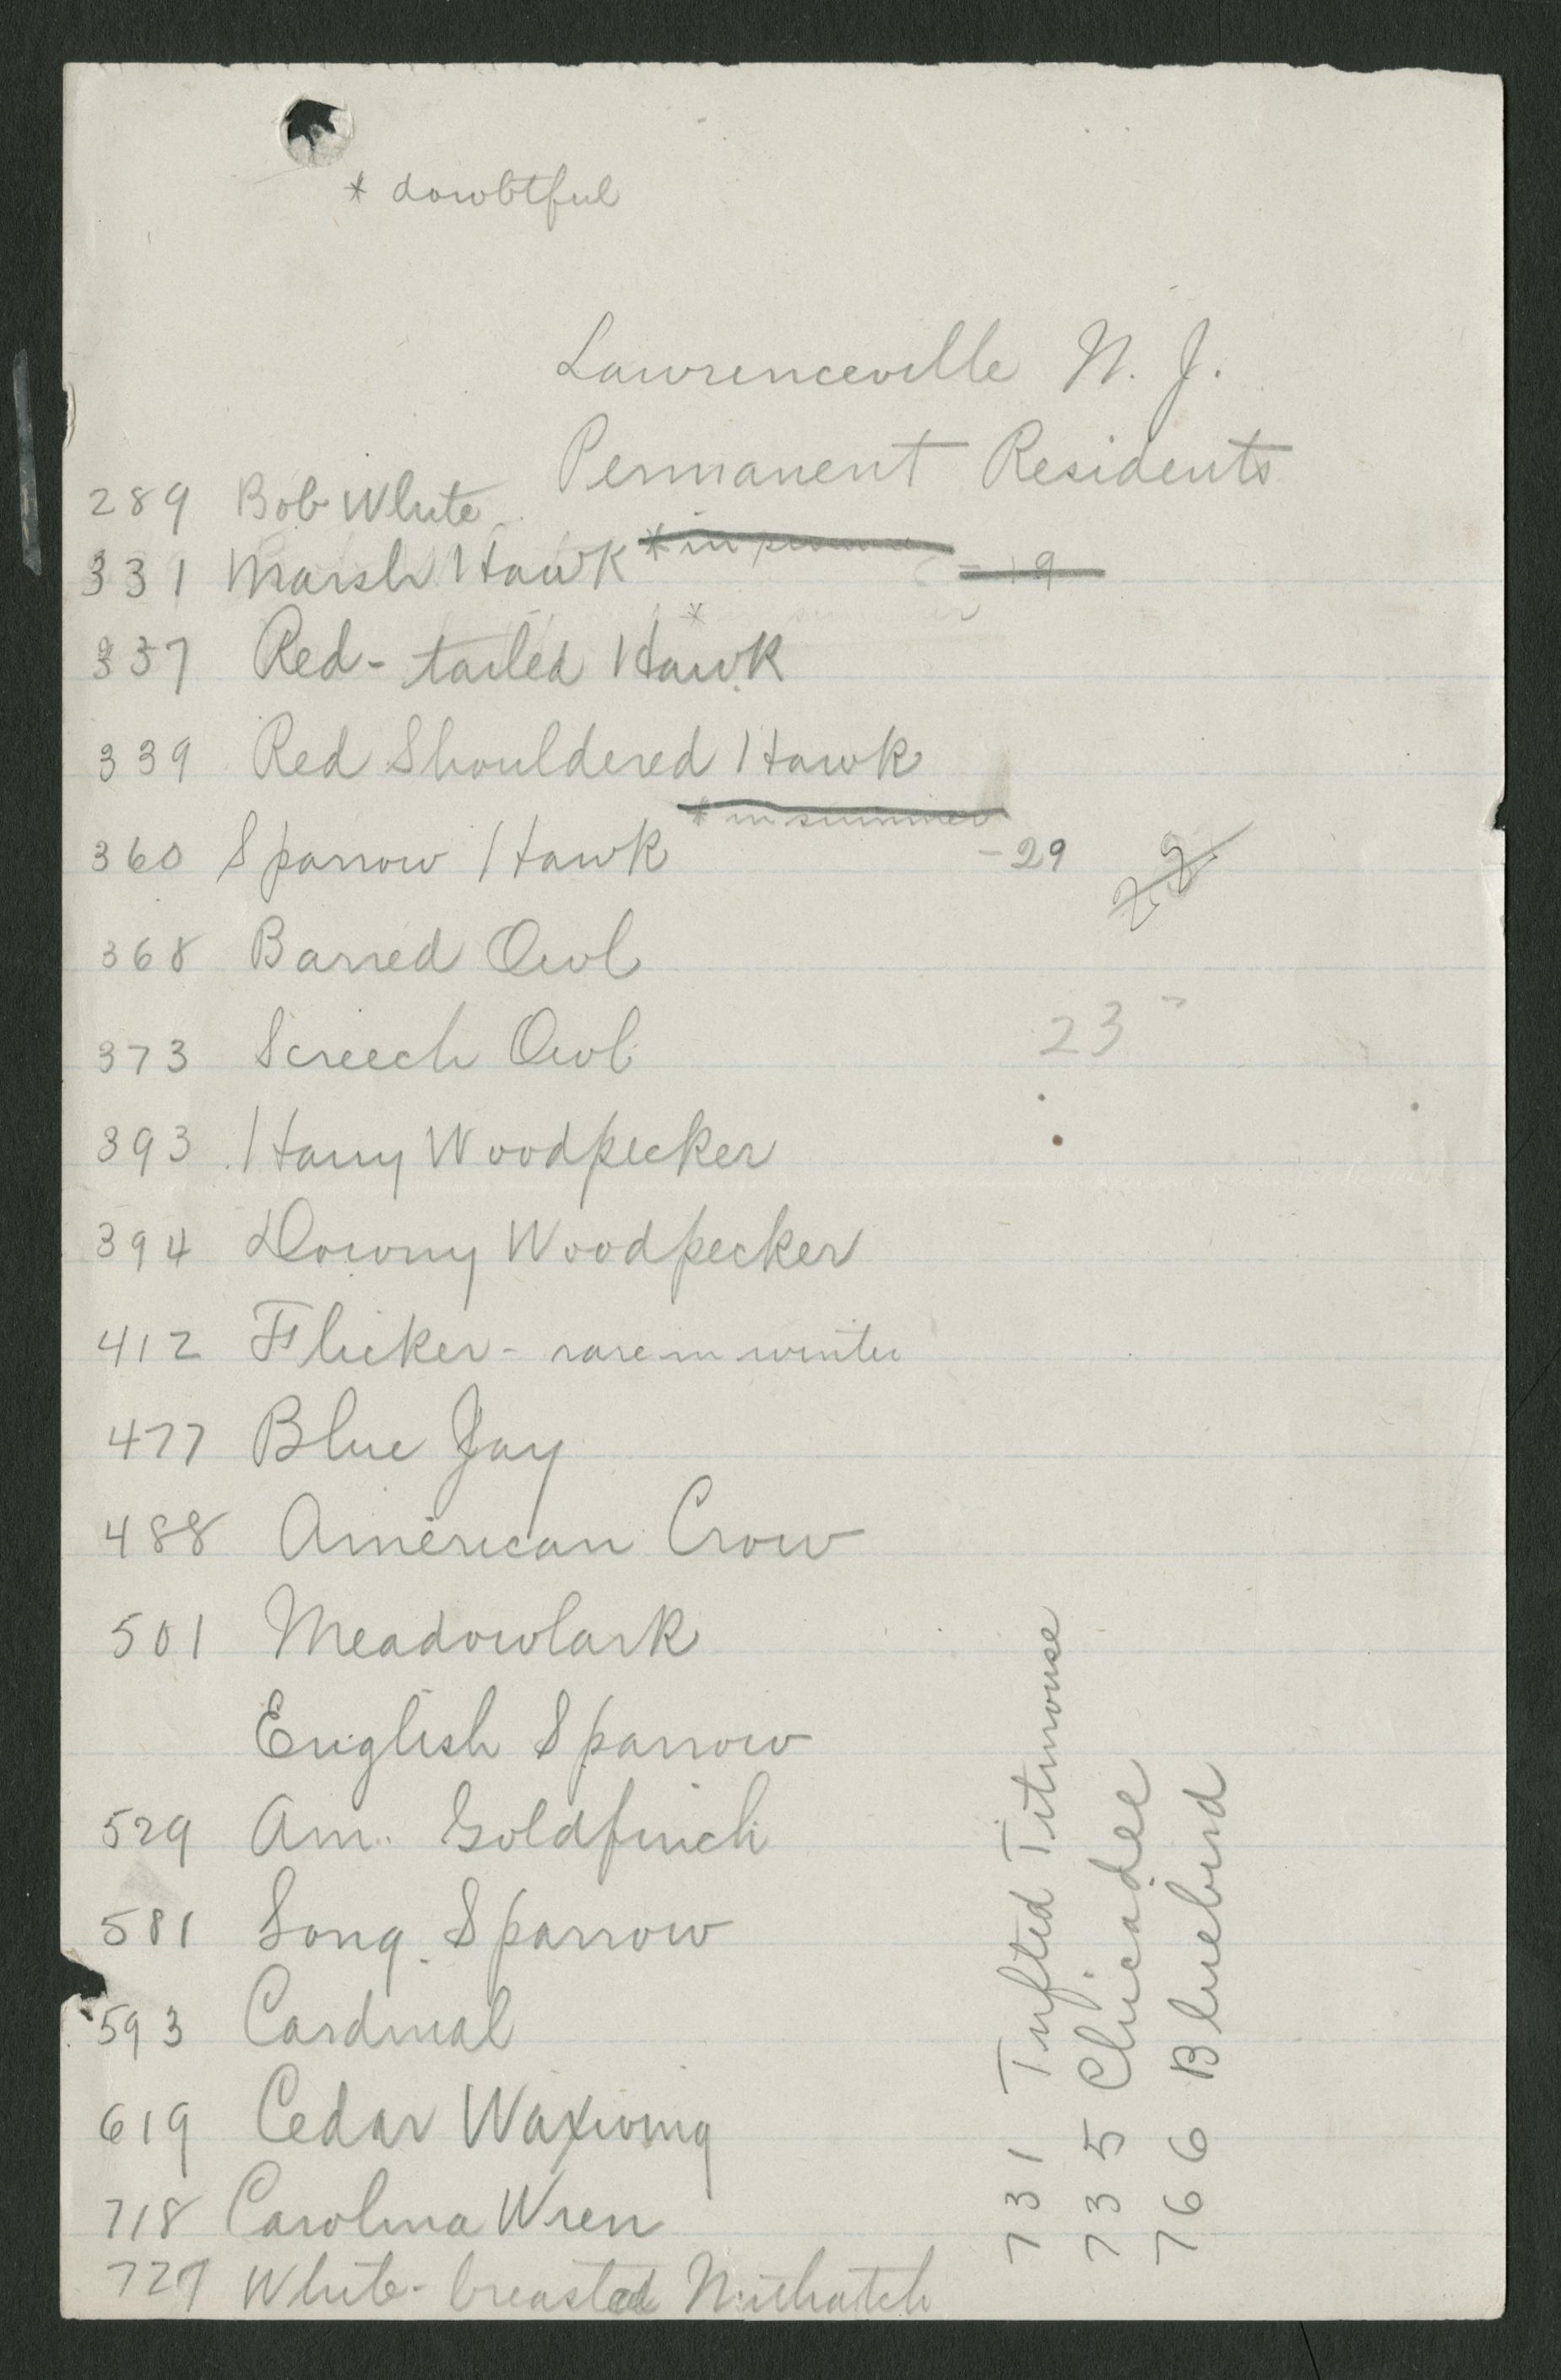 * doubtful
Lawrenceville N. J.
Permanent Residents
289 Bob White
331 Marsh Hawk * in - 19
337 Red-tailed Hawk *
339 Red Shouldered Hawk
* in summer
360 Sparrow Hawk - 29 28
368 Barred Owl
373 Screech Owl 23
393 Hairy Woodpecker
394 Downy Woodpecker
412 Flicker - rare in winter
477 Blue Jay
488 American Crow
501 Meadowlark
English Sparrow
529 Am. Goldfinch
581 Song Sparrow
593 Cardinal
619 Cedar Waxwing
718 Carolina Wren
727 White-breasted Nuthatch
731 Tufted Titmouse
735 Chicadee
766 Bluebird